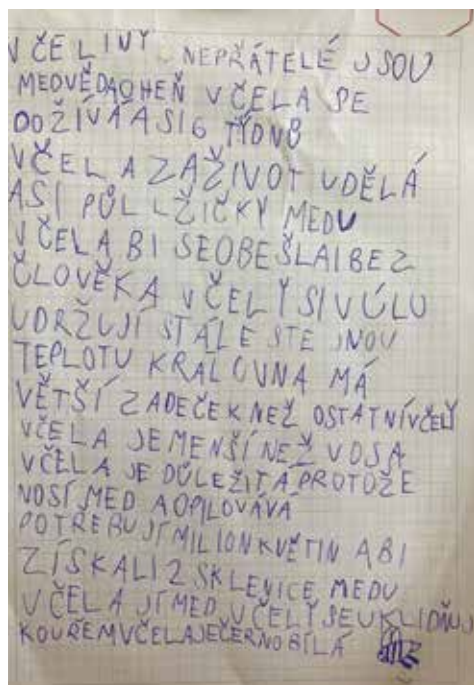 VČELINÝ NEPŘÁTELÉ JSOU
MEDVĚDAOHEŇ VČELA SE
DOŽÍVÁASI6 TÝDNŮ
VČELA ZAŽIVOT UDĚLÁ
ASI PŮL LŽIČKY MEDU
VČELA BI SEOBEŠLAIBEZ
ČLOVĚKA VČELY SI VÚLU
UDRŽUJÍ STÁLE STEJNOU
TEPLOTU KRALOVNA MÁ
VĚTŠÍ ZADEČEK NEŽ OSTATNÍVČELY
VČELA JEMENŠÍ NEŽ VOSA
VČELA JE DŮLEŽITÁPROTOŽE
NOSÍ MED AOPILOVÁVÁ
POTŘEBUJÍMILIONKVĚTIN ABI
ZÍSKALI 2 SKLENICE MEDU
VČELA JÍMED VČELY SEUKLIDŇUJ
KOUŘEMVČELAJEČERNOBÍLÁ